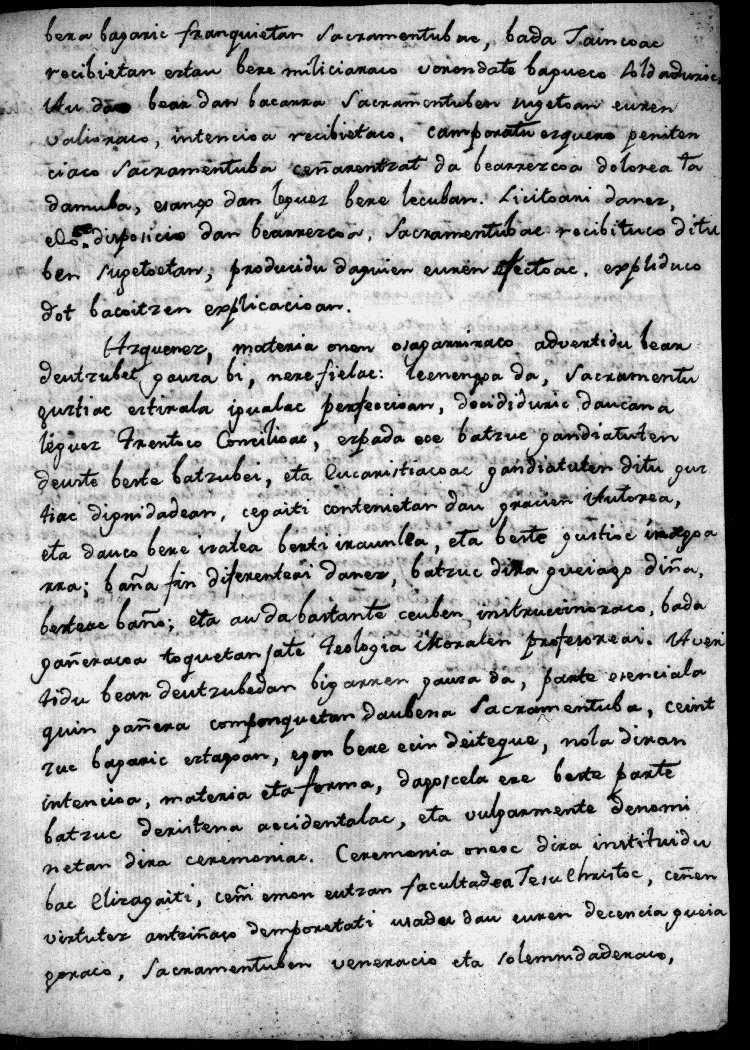 bera bagaric franquietan Sacramentubac, bada Jaincoac
recibietan eztau bere miliciaraco vorondate bagueco soldaduric.
Au da bear dan bacarra Sacramentuben sugetoan euren
valioraco, intencioa recibietaco. Camporatu ezquero peniten
ciaco Sacramentuba ceñarentzat da bearrezcoa dolorea ta
damuba, esango dan leguez bere lecuban. Licitoari danez,
disposicio dan bearrezcoa. Sacramentubac recibituco ditu
ben sugetoetan, producidu daguien euren efectoac. expliduco
dot bacoitzen explicacioan.
Azquenez, materia onen osagarriraco advertidu bear
deutzubet gauza bi, nere fielac: leenengoa da, Sacramentu
guztiac eztirala igualac perfeccioan, decididuric daucana
leguez Trentoco Concilioac, ezpada ece batzuc gandiatuten
deuste beste batzubei, eta Eucaristiacoac gandiatuten ditu guz
tiac dignidadean, cegaiti contenietan dau gracien Autorea,
eta dauco bere izatea berti iraunlea, eta beste guztioc iragoa
rra; baña fin diferenteari danez, batzuc dira gueiago diña,
besteac baño; eta au da bastante ceuben instruccinoraco, bada
gañeracoa toquetan jate Teologia Moralen profesoreai. Averti
tidu bear deutzubedan bigarren gauza da, parte esenciala
quin gañera componquetan daubena Sacramentuba, ceint
zuc bagaric eztagoan, egon bere ecin deiteque, nola diran
intencioa, materia eta forma, dagozcela ere beste parte
batzuc deristena accidentalac, eta vulgarmente denomi
netan dira ceremoniac. Ceremonia oneec dira instituidu
bac Elizagaiti, ceñi emon eutzan facultadea Jesu Christoc, ceñen
virtutez antziñaco demporetati usadu dau euren decencia gueia
goraco, Sacramentuben veneracio eta solemnidaderaco,